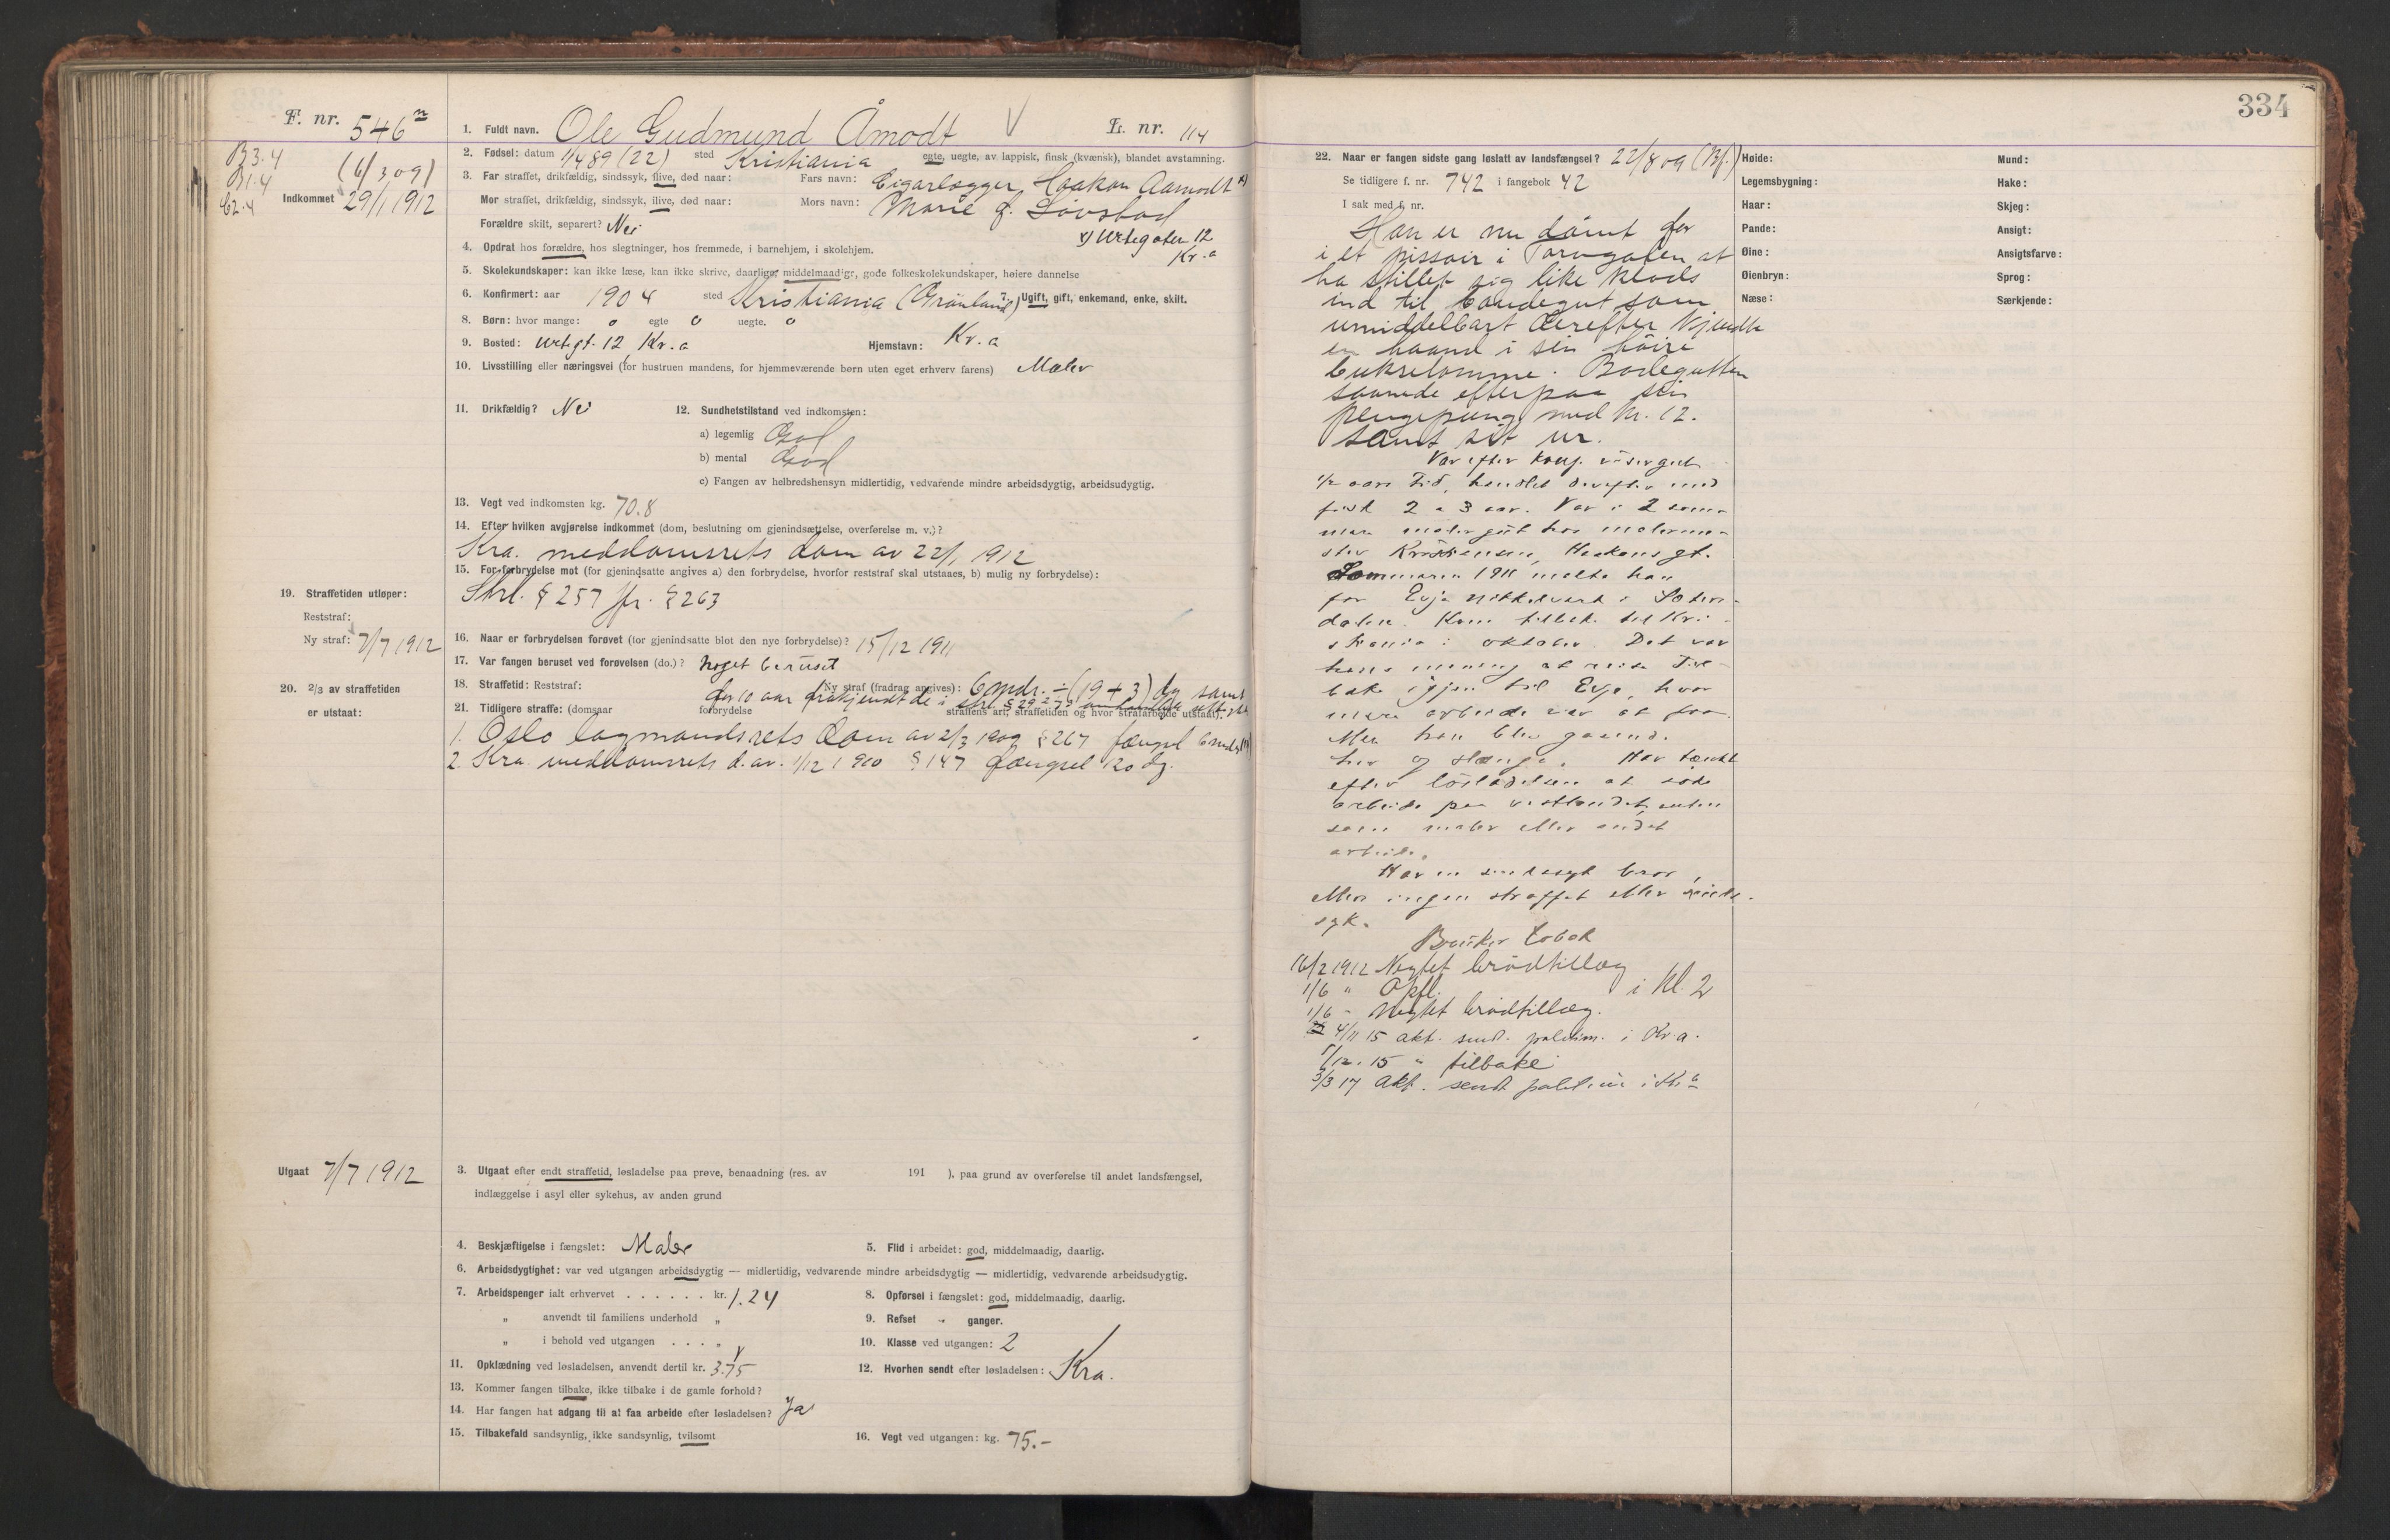 F. nr. 546
B3.4
B1.4
62.4
(6/3 09)
Indkommet 29/1 1912
1. Fuldt navn. Ole Gudmund Åmodt V L. nr. 114
2. Fødsel: datum 1/4 89 (22) sted Kristiania egte, uegte, av lappisk, finsk (kvænsk), blandet avstamning.
3. Far straffet, drikfældig, sindssyk, ilive, død naar: Fars navn: Cigarlægger Haakon Aamodt x)
Mor straffet, drikfældig, sindssyk, ilive, død naar: Mors navn: Marie f. Lövstad
Forældre skilt, separert? Nei
x) Urtegaten 12
Kr.a
4. Opdrat hos forældre, hos slegtninger, hos fremmede, i barnehjem, i skolehjem.
5. Skolekundskaper: kan ikke læse, kan ikke skrive, daarlige, middelmaadige, gode folkeskolekundskaper, høiere dannelse
6. Konfirmert: aar 1904 sted Kristiania (Grönland) 7. Ugift, gift, enkemand, enke, skilt.
8. Børn: hvor mange: 0 egte 0 uegte. 0
9. Bosted: Urtegt. 12 Kr.a Hjemstavn: Kr.a
10. Livsstilling eller næringsvei (for hustruen mandens, for hjemmeværende børn uten eget erhverv farens) Maler
11. Drikfældig? Nei 12. Sundhetstilstand ved indkomsten:
a) legemlig God
b) mental God
c) Fangen av helbredshensyn midlertidig, vedvarende mindre arbeidsdygtig, arbeidsudygtig.
13. Vegt ved indkomsten kg. 70.8
14. Efter hvilken avgjørelse indkommet (dom, beslutning om gjenindsættelse, overførelse m. v.)?
Kra. meddomsrets dom av 22/1 1912
15. For forbrydelse mot (for gjenindsatte angives a) den forbrydelse, hvorfor reststraf skal utstaaes, b) mulig ny forbrydelse):
Strl. § 257 jfr. § 263
19. Straffetiden utløper:
Reststraf:
Ny straf: 7/7 1912
16. Naar er forbrydelsen forøvet (for gjenindsatte blot den nye forbrydelse)? 15/12 1911
17. Var fangen beruset ved forøvelsen (do.)? Noget beruset
18. Straffetid: Reststraf: Ny straf (fradrag angives): 6 mdr. ÷ (19 + 3) dg samt
for 10 aar frakjendt de i strl. § 29
20. 2/3 av straffetiden
er utstaat:
21. Tidligere straffe: (domsaar forbrydelse straffens art, straffetiden og hvor strafarbeide utstaat).
1. Oslo lagmandsrets dom av 2/3 1909 § 267 fængsel 6 mndr
2. Kra. meddomsrets d. av. 1/12 1910 § 147 fængsel 120 dg.
Utgaat 7/7 1912
3. Utgaat efter endt straffetid, løsladelse paa prøve, benaadning (res. av 191 ), paa grund av overførelse til andet landsfængsel,
indlæggelse i asyl eller sykehus, av anden grund
4. Beskjæftigelse i fængslet: Maler 5. Flid i arbeidet: god, middelmaadig, daarlig.
6. Arbeidsdygtighet: var ved utgangen arbeidsdygtig — midlertidig, vedvarende mindre arbeidsdygtig — midlertidig, vedvarende arbeidsudygtig.
7. Arbeidspenger ialt erhvervet . . . . . . kr. 1.24 8. Opførsel i fængslet: god, middelmaadig, daarlig.
„ anvendt til familiens underhold „ 9. Refset - ganger.
„ i behold ved utgangen . . . . „ 10. Klasse ved utgangen: 2
11. Opklædning ved løsladelsen, anvendt dertil kr. 3.75 12. Hvorhen sendt efter løsladelsen: Kra.
13. Kommer fangen tilbake, ikke tilbake i de gamle forhold?
14. Har fangen hat adgang til at faa arbeide efter løsladelsen? Ja
15. Tilbakefald sandsynlig, ikke sandsynlig, tvilsomt 16. Vegt ved utgangen: kg. 75.-
334
22. Naar er fangen sidste gang løslatt av landsfængsel? 22/8 09 (Bf.)
Se tidligere f. nr. 742 i fangebok 42
I sak med f. nr.
Han er nu dömt for
i et pissoir i Torvgaten at
ha stillet sig like klods
ind til bondegut som
umiddelbart derefter kjendte
en haand i sin höire
bukselomme. Bondegutten
savnede efterpaa sin
pengepung med kr. 12.
samt sit ur.
Var efter konf. visergut
1/2 aars tid, handlet derefter med
fisk 2 a 3 aar. Var i 2 som-
mere malergut hos malerme-
ster Kristensen, Haakons gt.
Sommeren 1911 malte han
for Evje nikkelverk i Sæters-
dalen. Kom tilbake til Kri-
stiania i oktober. Det var
hans mening at reise til-
bake igjen til Evje, hvor
mere arbeide var at faa.
Men han blev gaaende
her og slænge. Har tænkt
efter lösladelsen at söke
arbeide paa vestlandet enten
som maler eller andet
arbeide.
Har en sindssyk bror,
ellers ingen straffet eller sinds-
syk.
Bruker tobak
16/2 1912 Negtet brödtillæg
1/6 " Opfl. i kl. 2
1/6 - Negtet brödtillæg.
4/11 15 akt. send. politim. i Kr.a.
7/12. 15 " tilbake
3/3 17 Akt. sendt politim i Kr.a
Høide:
Legemsbygning:
Haar:
Pande:
Øine:
Øienbryn:
Næse:
Mund:
Hake:
Skjeg:
Ansigt:
Ansigtsfarve:
Sprog:
Særkjende: